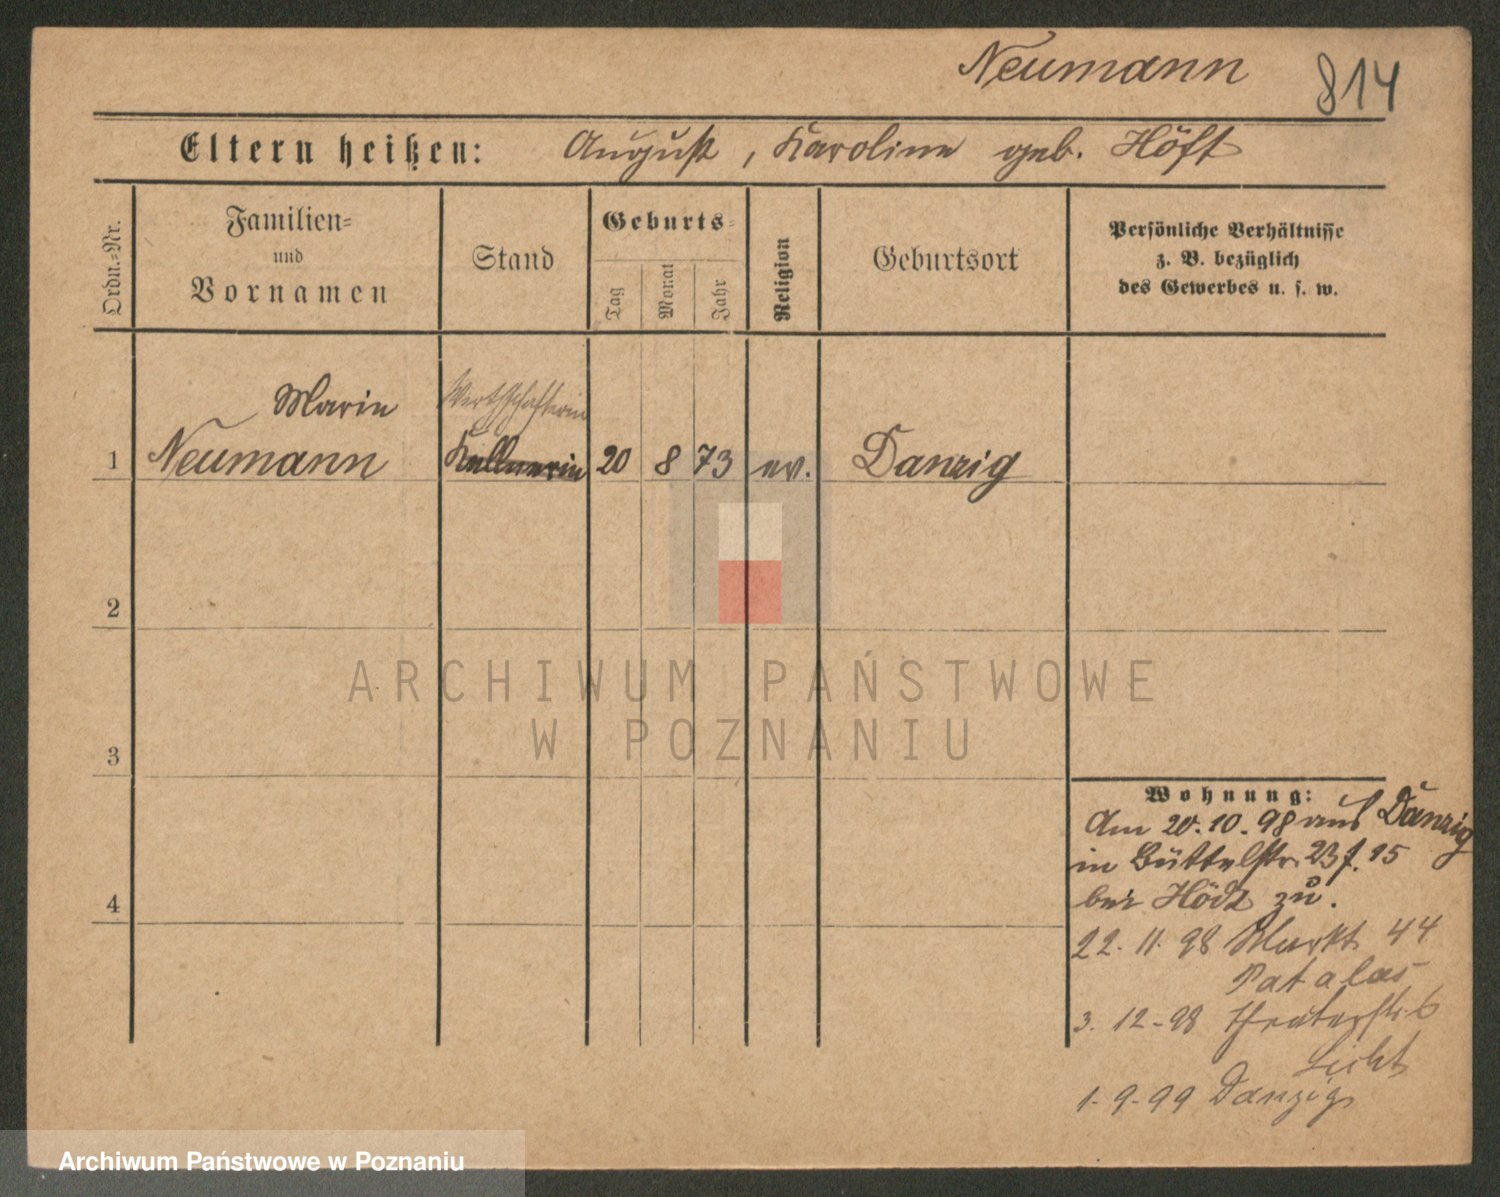 Neumann 814
Eltern heißen: August, Karoline geb. Höft
Ordn.-Nr.
Familien-
und
Vornamen
Stand
Geburts-
Tag
Monat
Jahr
Religion
Geburtsort
Persönliche Verhältnisse
z. B. bezüglich
des Gewerbes u. s. w.
Marie
Wirthschafterin
1 Neumann Kellnerin 20 8 73 ev. Danzig
2
3
4
ARCHIWUM PAŃSTWOWE
W POZNANIU
Wohnung:
Am 20.10.98 aus Danzig
in Büttelstr. 23 f. 15
bei zu.
22. 11. 98 Markt 44
Patalas
3. 12-98
Licht
1-9-99 Danzig
Archiwum Państwowe w Poznaniu